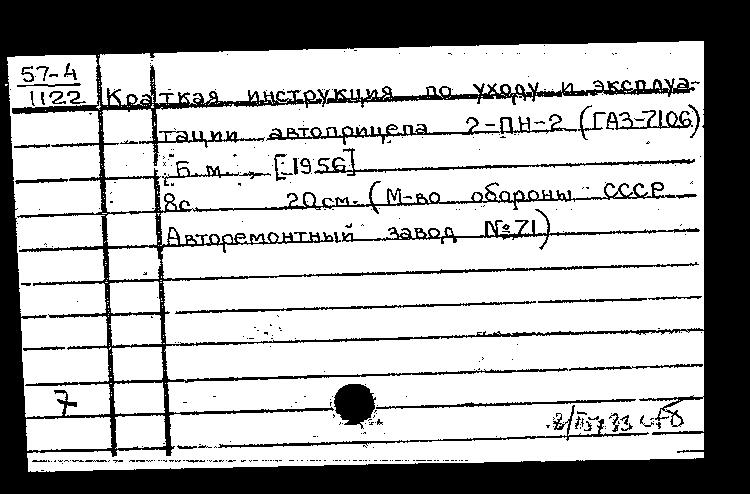 57-4
1122
Краткая инструкция по уходу и эксплуа-
тации автоприцепа 2-ПН-2 (ГАЗ-710б)
Б. м., [1956]
8с. 20см. (М-во обороны СССР
Авторемонтный завод №71)
7